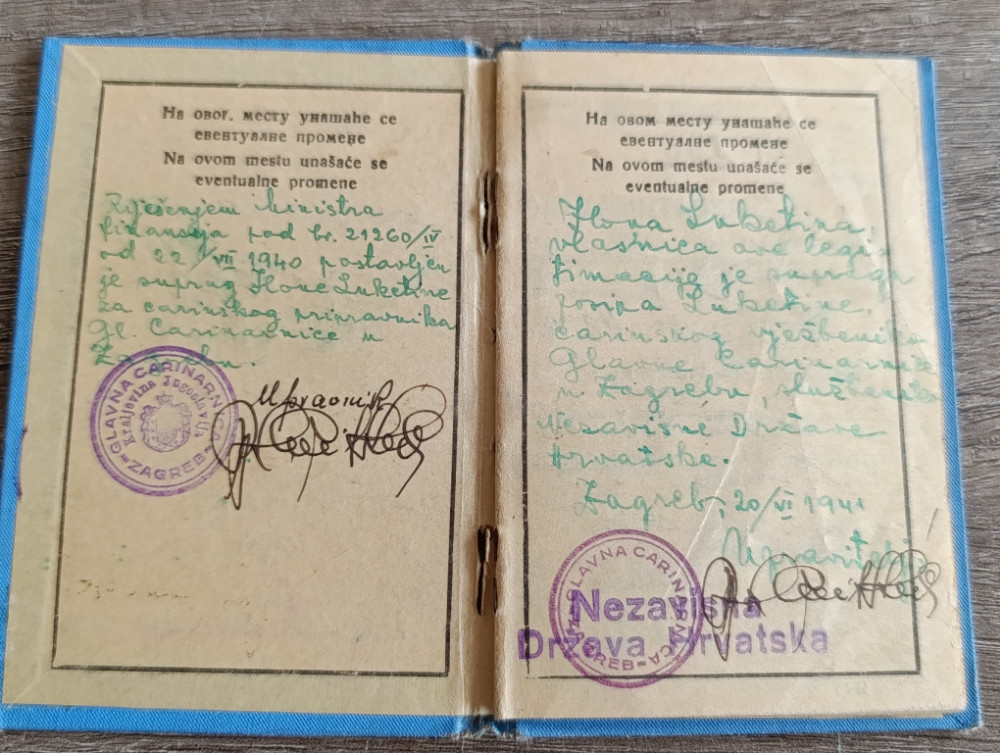 На овог. месту унашаће се
евентуалне промене
Na ovom mestu unašaće se
eventualne promene
Rješenjem Ministra
finansija pod br. 21260/IV
od 22/VII 1940 postavljen
je suprug Ilone Luketine
za carinskog pripravnika
Gl. Carinarnice u
Zagrebu.
Upravnik
GLAVNA CARINARNICA
Kraljevina Jugoslavija
ZAGREB
На овом месту унашаће се
евентуалне промене
Na ovom mestu unašaće se
eventualne promene
Ilona Luketina,
vlasnica ove legi-
timacije je supruga
Josipa Luketine,
carinskog vježbenika
Glavne Carinarnice
u Zagrebu, službenika
Nezavisne Države
Hrvatske.
Zagreb, 20/VI 1941
Upravitelj
GLAVNA CARINARNICA
ZAGREB
Nezavisna
Država Hrvatska